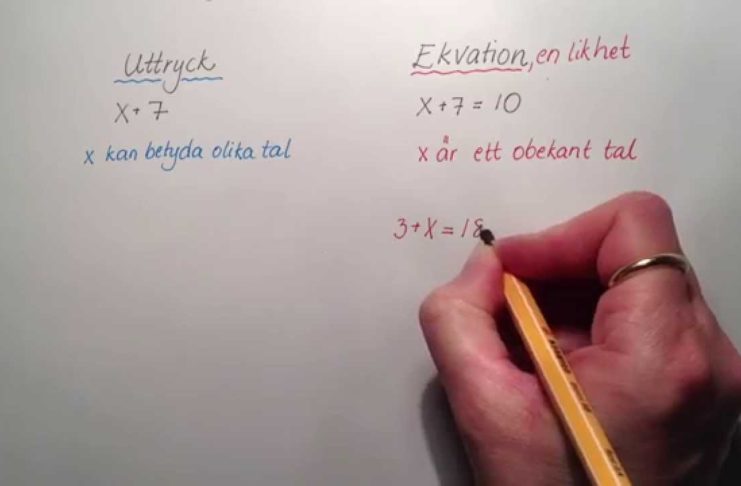 Uttryck
x + 7
x kan betyda olika tal
Ekvation, en likhet
x + 7 = 10
x är ett obekant tal
3 + x = 18